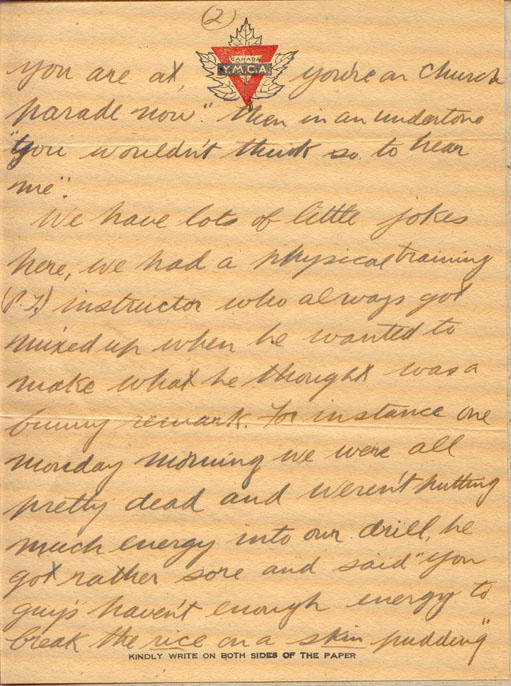 (2)
CANADA
Y.M.C.A
you are at, you're on church
parade now". then in an undertone
"you wouldn't think so to hear
me".
We have lots of little jokes
here, we had a physical training
(P.T.) instructor who always got
mixed up when he wanted to
make what he thought was a
funny remark. For instance one
monday morning we were all
pretty dead and weren't putting
much energy into our drill, he
got rather sore and said "you
guys haven't enough energy to
break the rice on a skin pudding"
KINDLY WRITE ON BOTH SIDES OF THE PAPER